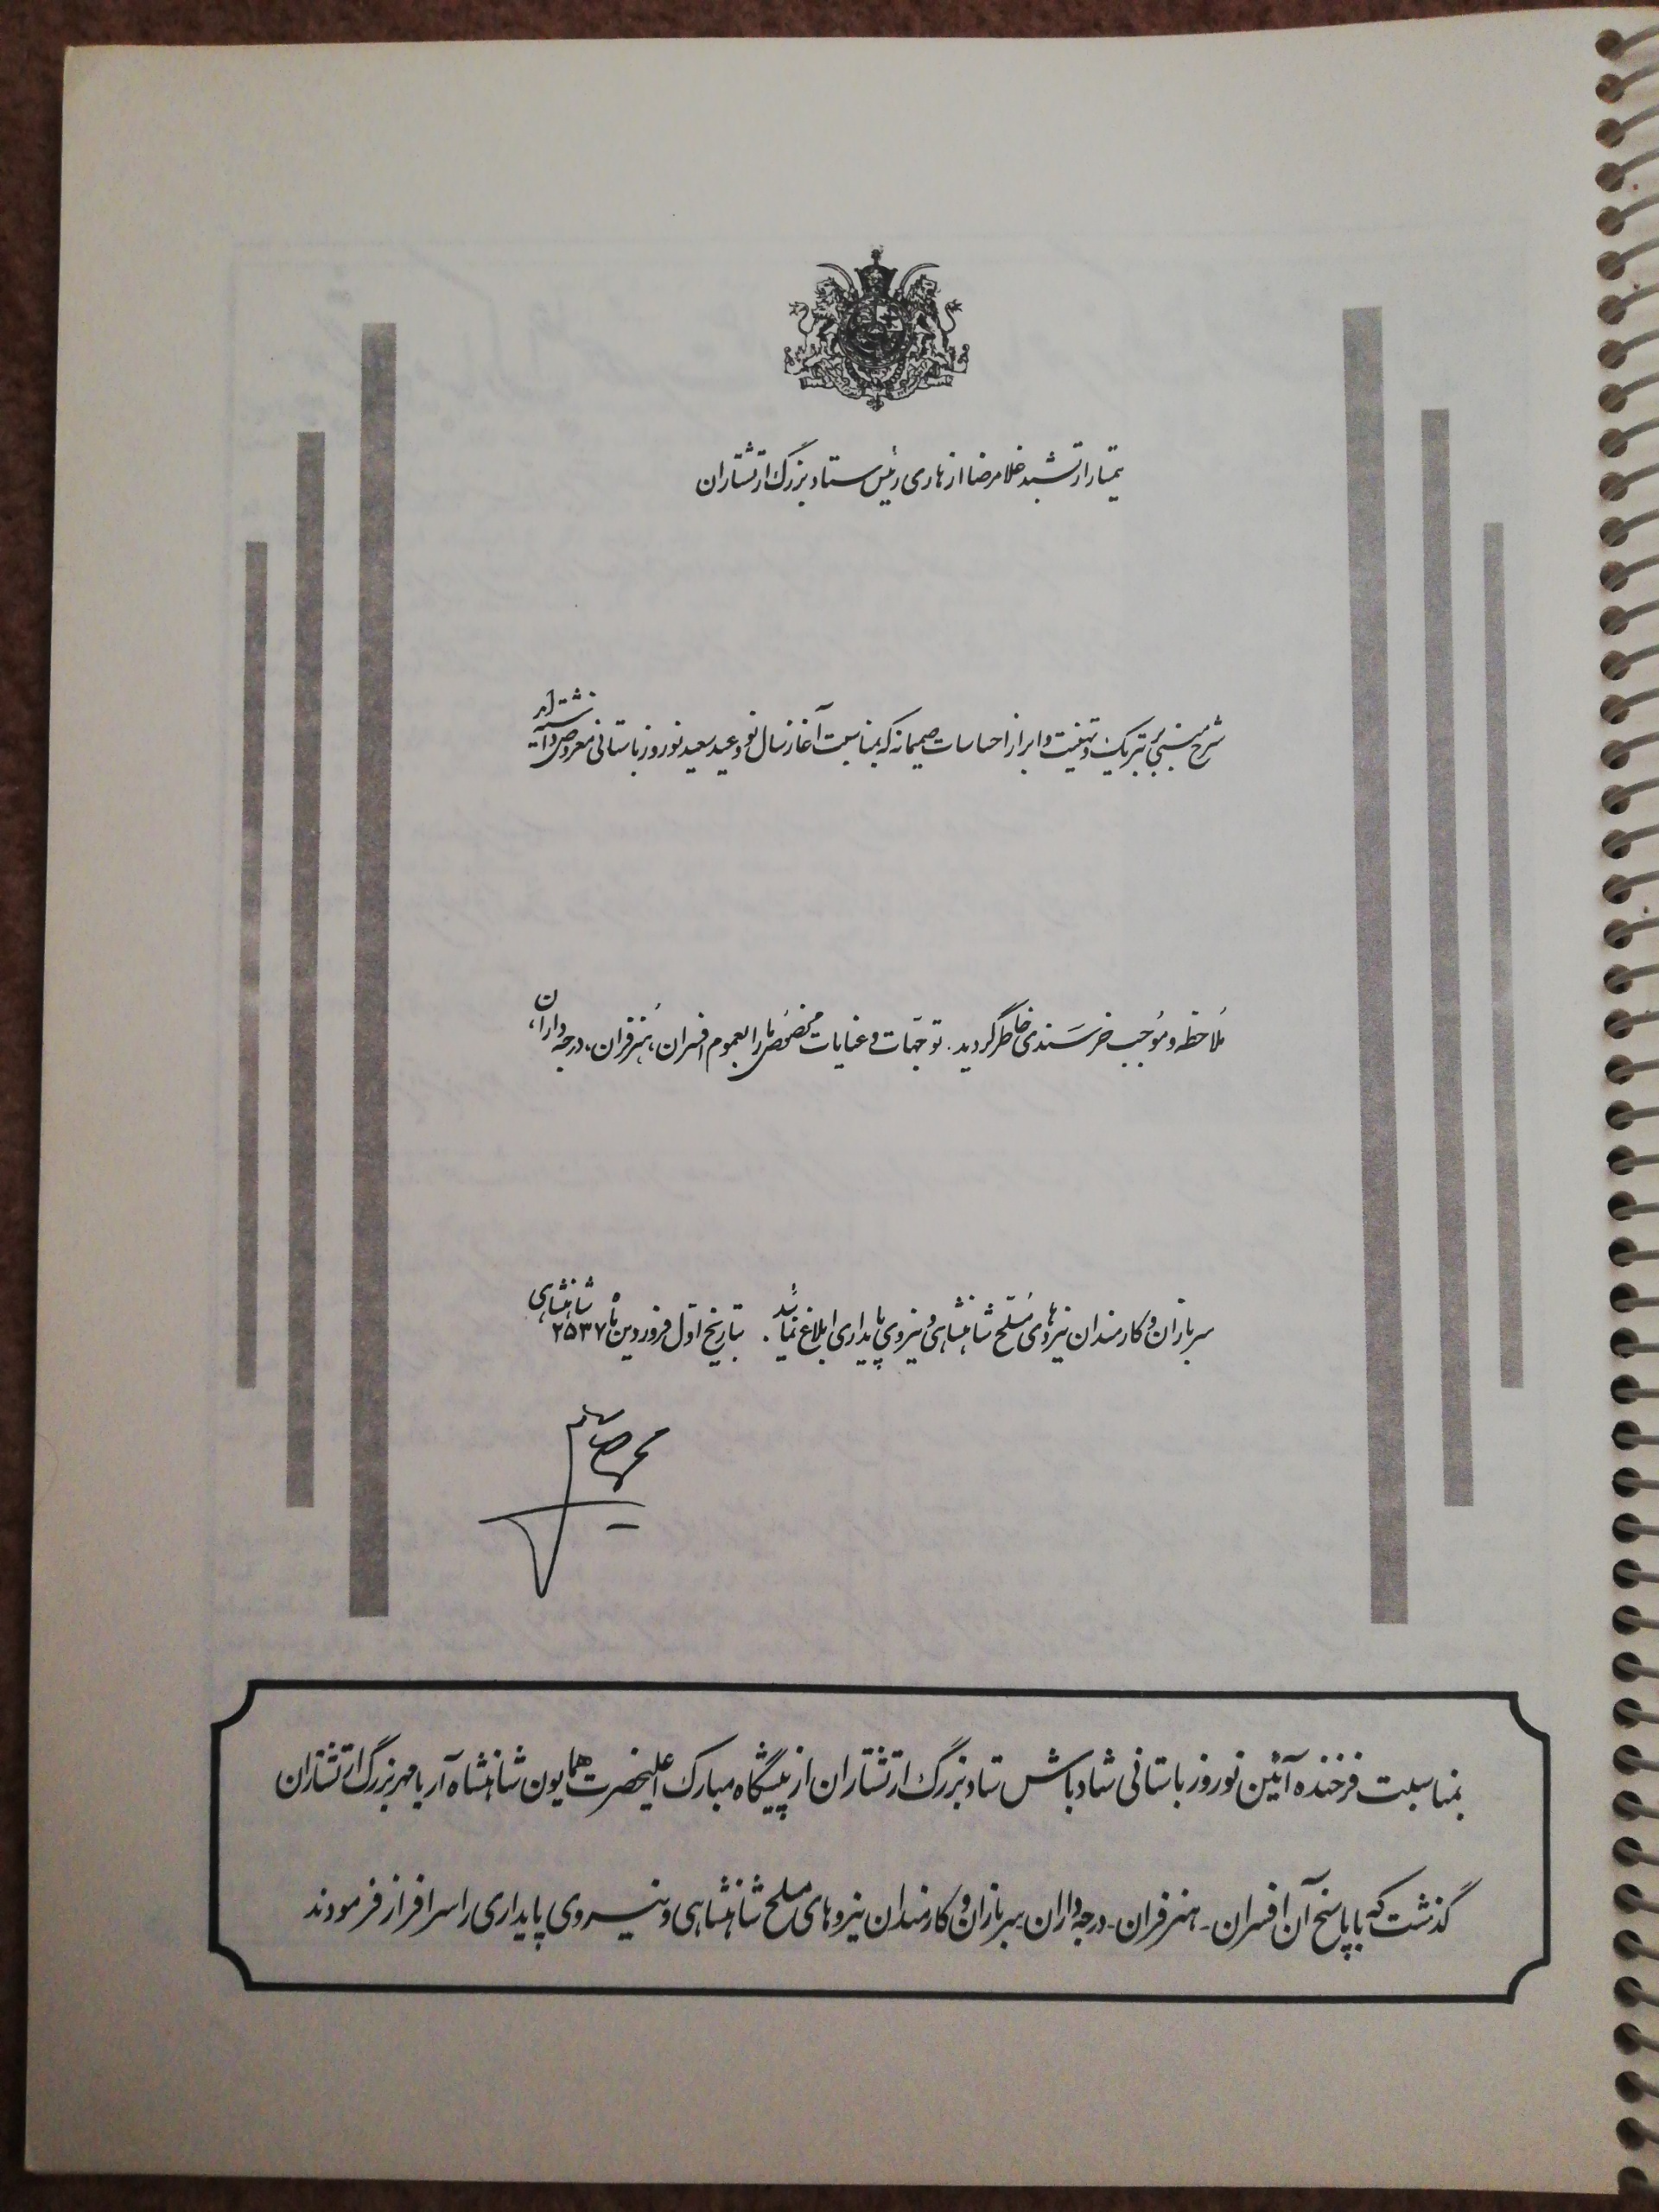 تیمسار ارتشبد غلامرضا ازهاری رئیس ستاد بزرگ ارتشتاران
شرح مبنی بر تبریک و تهنیت و ابراز احساسات صمیمانه که بمناسبت آغاز سال نو و عید سعید نوروز باستانی معروض داشته اید
ملاحظه و موجب خرسندی خاطر گردید. توجهات و عنایات مخصوص ما را بعموم افسران، هنرفران، درجه داران،
سربازان و کارمندان نیروهای مسلح شاهنشاهی و نیروی پایداری ابلاغ نمائید. بتاریخ اول فروردین ماه ۲۵۳۷ شاهنشاهی
بمناسبت فرخنده آئین نوروز باستانی شادباش ستاد بزرگ ارتشتاران از پیشگاه مبارک اعلیحضرت همایون شاهنشاه آریامهر بزرگ ارتشتاران
گذشت که با پاسخ آن افسران - هنرفران - درجه داران سربازان و کارمندان نیروهای مسلح شاهنشاهی و نیروی پایداری را سرافراز فرمودند